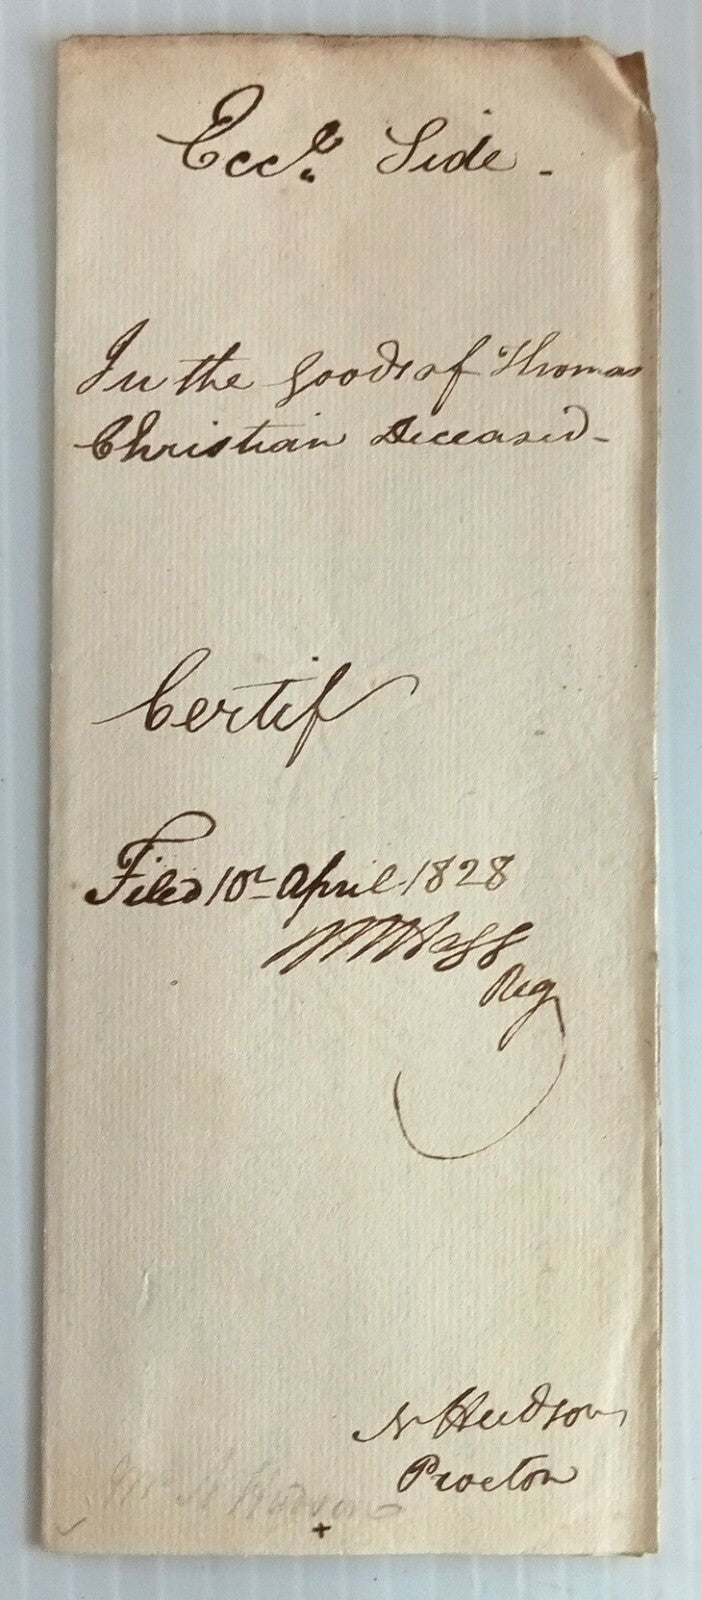 Eccl. Side -
In the goods of Thomas
Christian deceased -
Certif
Filed 10th April 1828
Reg
N Hudson
Proctor
Mr N Hudson